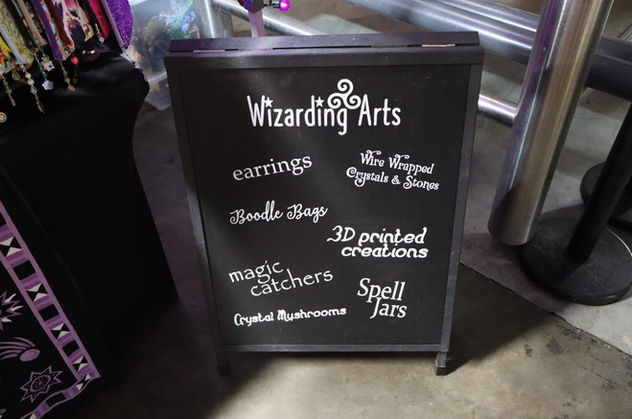 Wizarding Arts
earrings
Wire Wrapped
Crystals & Stones
Boodle Bags
3D printed
creations
magic
catchers
Spell
Jars
Crystal Mushrooms